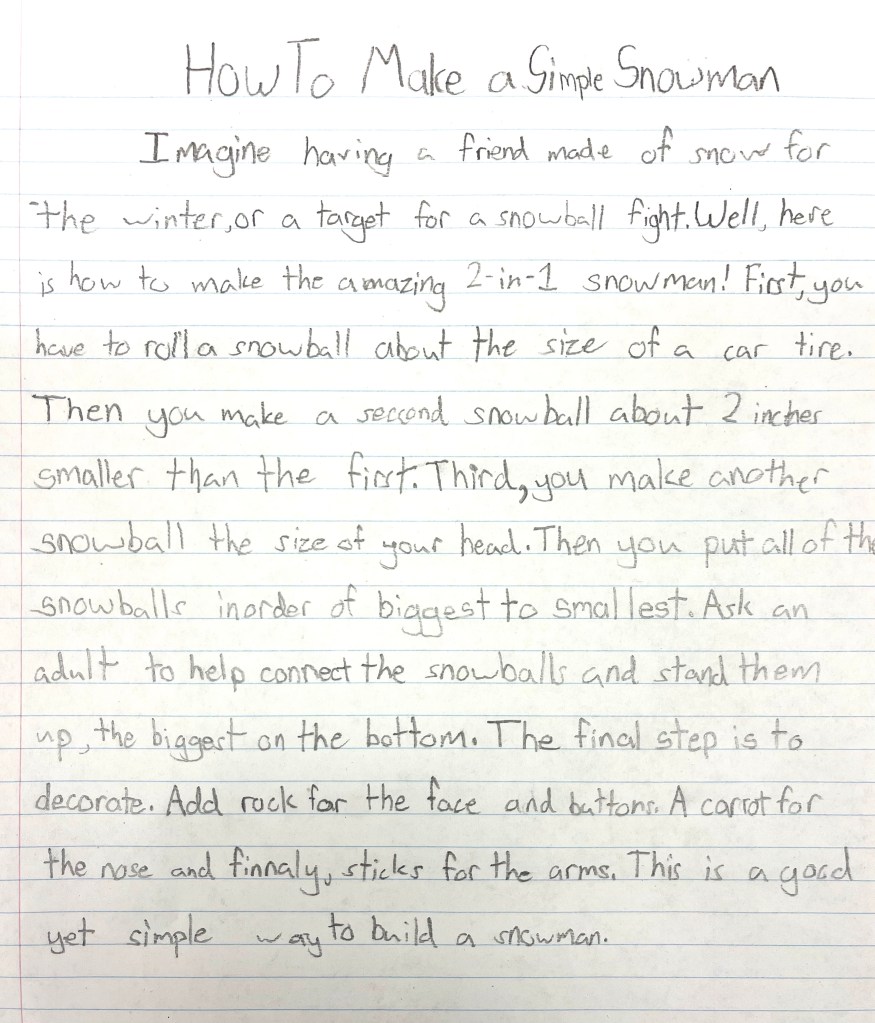 How To Make a Simple Snowman
Imagine having a friend made of snow for
the winter, or a target for a snowball fight. Well, here
is how to make the amazing 2-in-1 snowman! First, you
have to roll a snowball about the size of a car tire.
Then you make a seccond snowball about 2 inches
smaller than the first. Third, you make another
snowball the size of your head. Then you put all of the
snowballs inorder of biggest to smallest. Ask an
adult to help connect the snowballs and stand them
up, the biggest on the bottom. The final step is to
decorate. Add rock for the face and buttons. A carrot for
the nose and finnaly, sticks for the arms. This is a good
yet simple way to build a snowman.